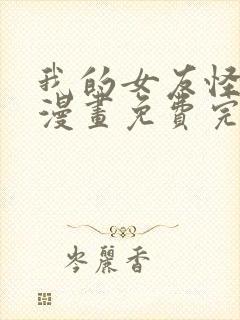 我的女友怪
漫畫免費完
岑麗香